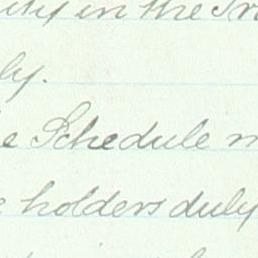 in the
ly.
e Schedule
holders duly